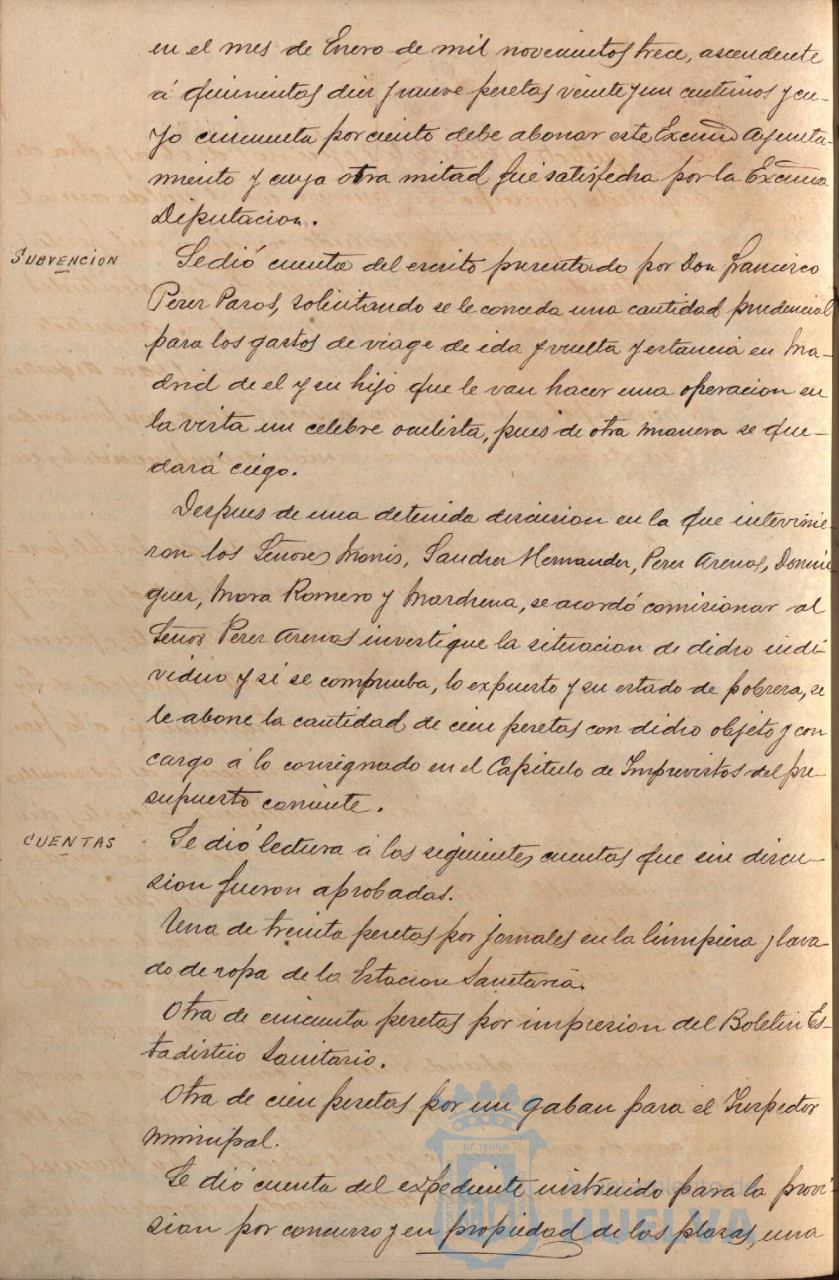 en el mes de Enero de mil novecientos trece, ascendente
á quinientas diez y nueve pesetas veinte y un centimos y cu-
yo cincuenta por ciento debe abonar este Excmo Ayunta-
miento y cuya otra mitad fué satisfecha por la Excma
Diputacion.
SUBVENCION
Se dió cuenta del escrito presentado por Don Francisco
Perez Pazos, solicitando se le conceda una cantidad prudencial
para los gastos de viage de ida y vuelta y estancia en Ma-
drid de el y su hijo que le van hacer una operacion en
la vista un celebre oculista, pues de otra manera se que-
dará ciego.
Despues de una detenida discusion en la que intervinie-
ron los Señores Monis, Sanchez Hernandez, Perez Arenas, Domin
guez, Mora Romero y Marchena, se acordó comisionar al
Señor Perez Arenas investigue la situacion de dicho indi-
viduo y si se comprueba, lo expuesto y su estado de pobreza, se
le abone la cantidad de cien pesetas con dicho objeto y con
cargo á lo consignado en el Capitulo de Imprevistos del pre-
supuesto corriente.
CUENTAS
Se dió lectura á las siguientes cuentas que sin discu-
sion fueron aprobadas.
Una de treinta pesetas por jornales en la limpieza y lava-
do de ropa de la Estacion Sanitaria.
Otra de cincuenta pesetas por impresion del Boletin Es-
tadistico Sanitario.
Otra de cien pesetas por un gaban para el Inspector
municipal.
Se dió cuenta del expediente instruido para la provi-
sion por concurso y en propiedad de las plazas, una
HUELVA